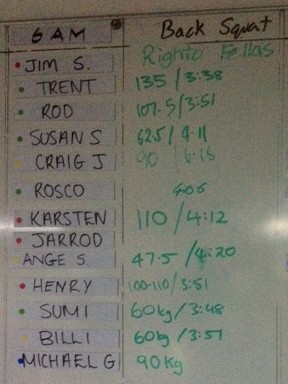 6 AM Back Squat
Righto Fellas
JIM S.
TRENT 135 / 3:38
ROD 107.5 / 3:51
SUSAN S 62.5 / 4:11
CRAIG J 90
ROSCO
KARSTEN 110 / 4:12
JARROD
ANGE S. 47.5 / 4:20
HENRY 100-110 / 3:51
SUMI 60kg / 3:48
BILLI 60kg / 3:57
MICHAEL G 90Kg